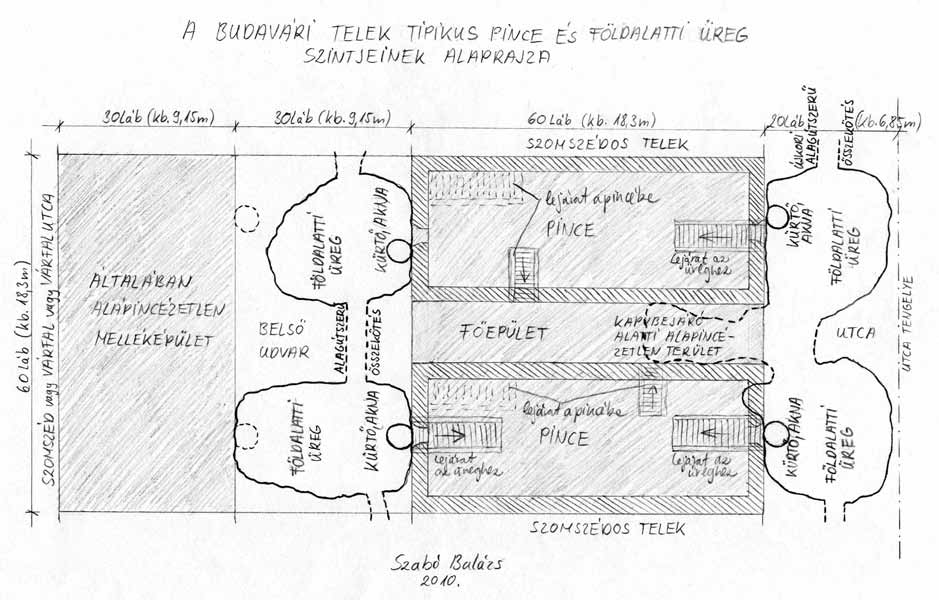 A BUDAVÁRI TELEK TIPIKUS PINCE ÉS FÖLDALATTI ÜREG
SZINTJEINEK ALAPRAJZA
30 Láb (kb. 9,15m)
30 Láb (kb. 9,15m)
60 Láb (kb. 18,3m)
20 Láb (kb. 6,85m)
60 Láb (kb. 18,3m)
SZOMSZÉD vagy VÁRFAL vagy VÁRFALUTCA
ÁLTALÁBAN
ALÁPINCÉZETLEN
MELLÉKÉPÜLET
BELSŐ
UDVAR
FÖLDALATTI
ÜREG
KÜRTŐ, AKNA
ALAGÚTSZERŰ
ÖSSZEKÖTÉS
FÖLDALATTI
ÜREG
KÜRTŐ, AKNA
SZOMSZÉDOS TELEK
lejárat a pincébe
PINCE
lejárat az
üreghez
FŐÉPÜLET
KAPUBEJÁRÓ
ALATTI ALÁPINCÉ-
ZETLEN TERÜLET
lejárat a pincébe
PINCE
lejárat
az üreghez
lejárat az
üreghez
SZOMSZÉDOS TELEK
ALAGÚTSZERŰ
ÖSSZEKÖTÉS
KÜRTŐ,
AKNA
FÖLDALATTI
ÜREG
UTCA
UTCA TENGELYE
KÜRTŐ, AKNA
FÖLDALATTI
ÜREG
Szabó Balázs
2010.